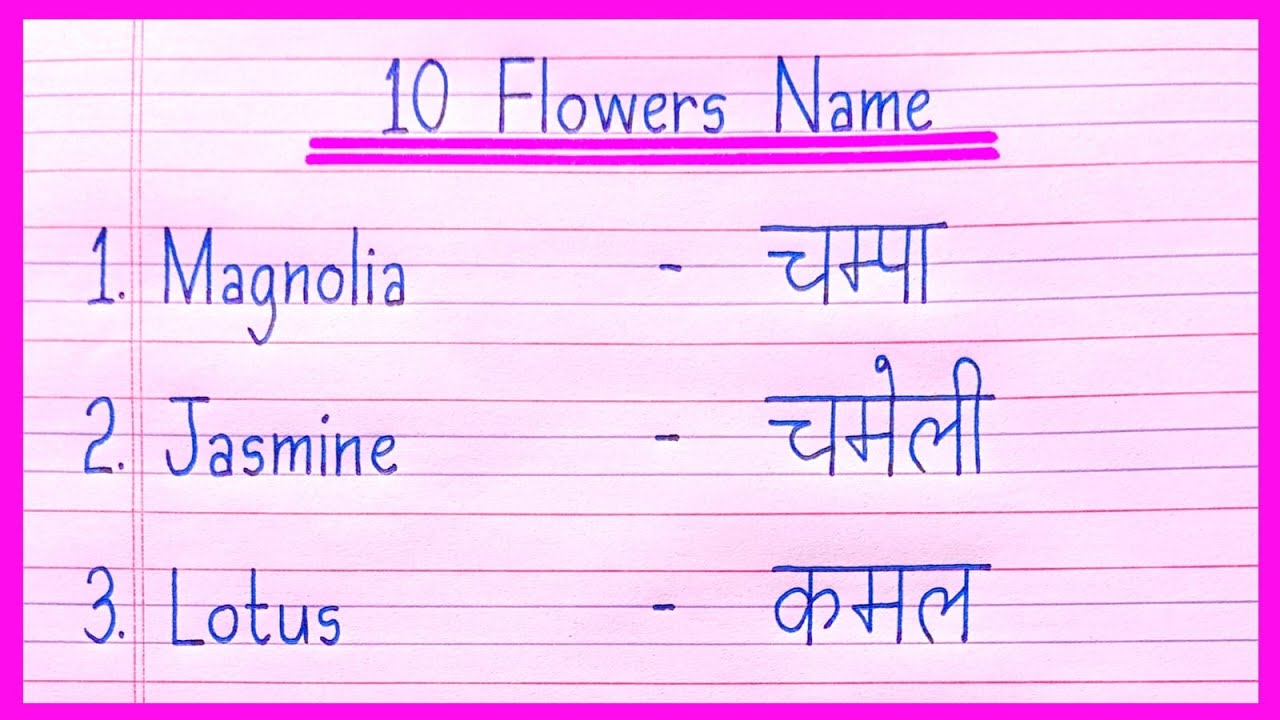 10 Flowers Name
1. Magnolia - चम्पा
2. Jasmine - चमेली
3. Lotus - कमल